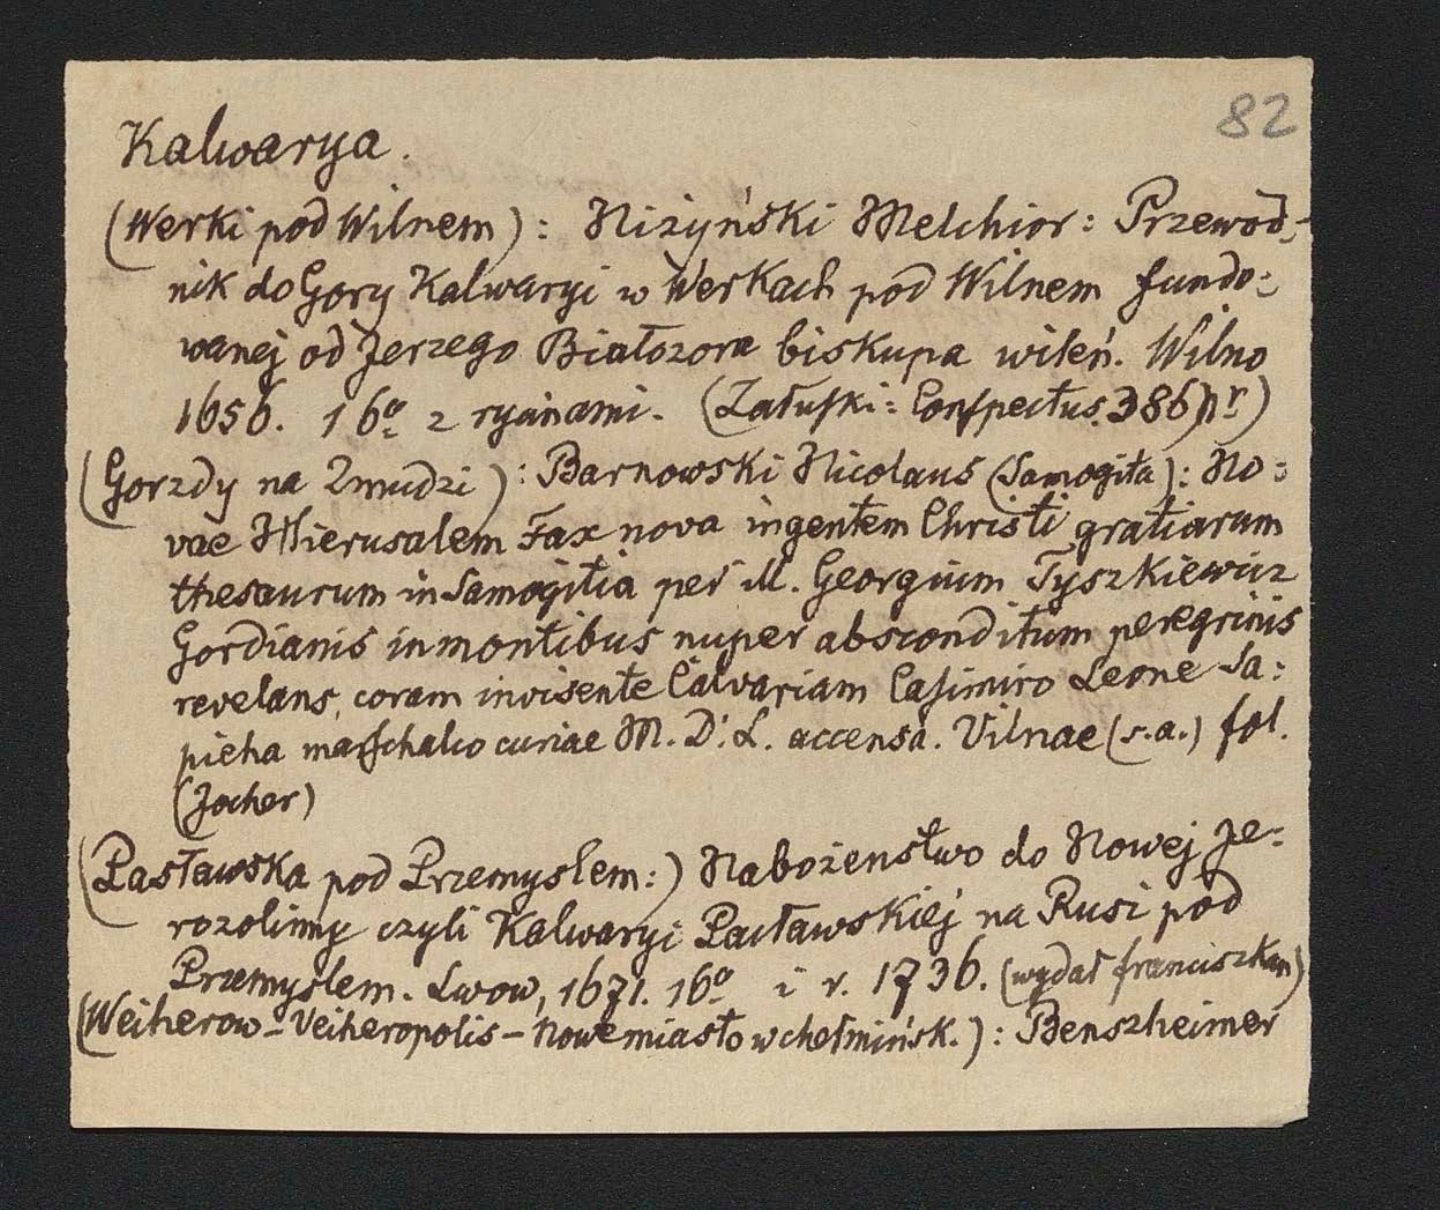 82
Kalwarya.
(Werki pod Wilnem): Niżyński Melchior: Przewod-
nik do Gory Kalwaryi w Werkach pod Wilnem fundo=
wanej od Jerzego Białozora biskupa wileń. Wilno
1656. 16º z rycinami. (Załuſki: Conſpectus. 386) nr)
(Gorzdy na Zmudzi): Barnowski Nicolaus (Samogita): No=
vae Hierusalem Fax nova ingentem Christi gratiarum
thesaurum in Samogitia per Ill. Georgium Tyszkiewicz
Gordianis in montibus nuper absconditum peregrinis
revelans, coram invisente Calvariam Caſimiro Leone Sa=
pieha marſchalco curiae M. D. L. accensa. Vilnae (s.a.) fol.
(Jocher)
(Pasławska pod Przemyslem:) Nabożenstwo do Nowej Je=
rozolimy czyli Kalwaryi Pacławskiéj na Rusi pod
Przemyslem. Lwow, 1671. 16º i r. 1736. (wydał franciszkan)
(Weiherow - Veiheropolis - Nowe miasto w chełmińsk.): Benszheimer